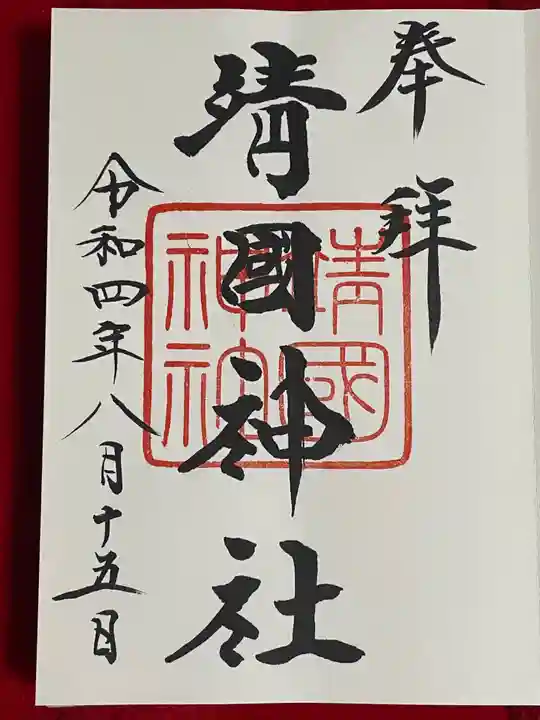 奉拝
靖國神社
靖國神社
令和四年八月十五日